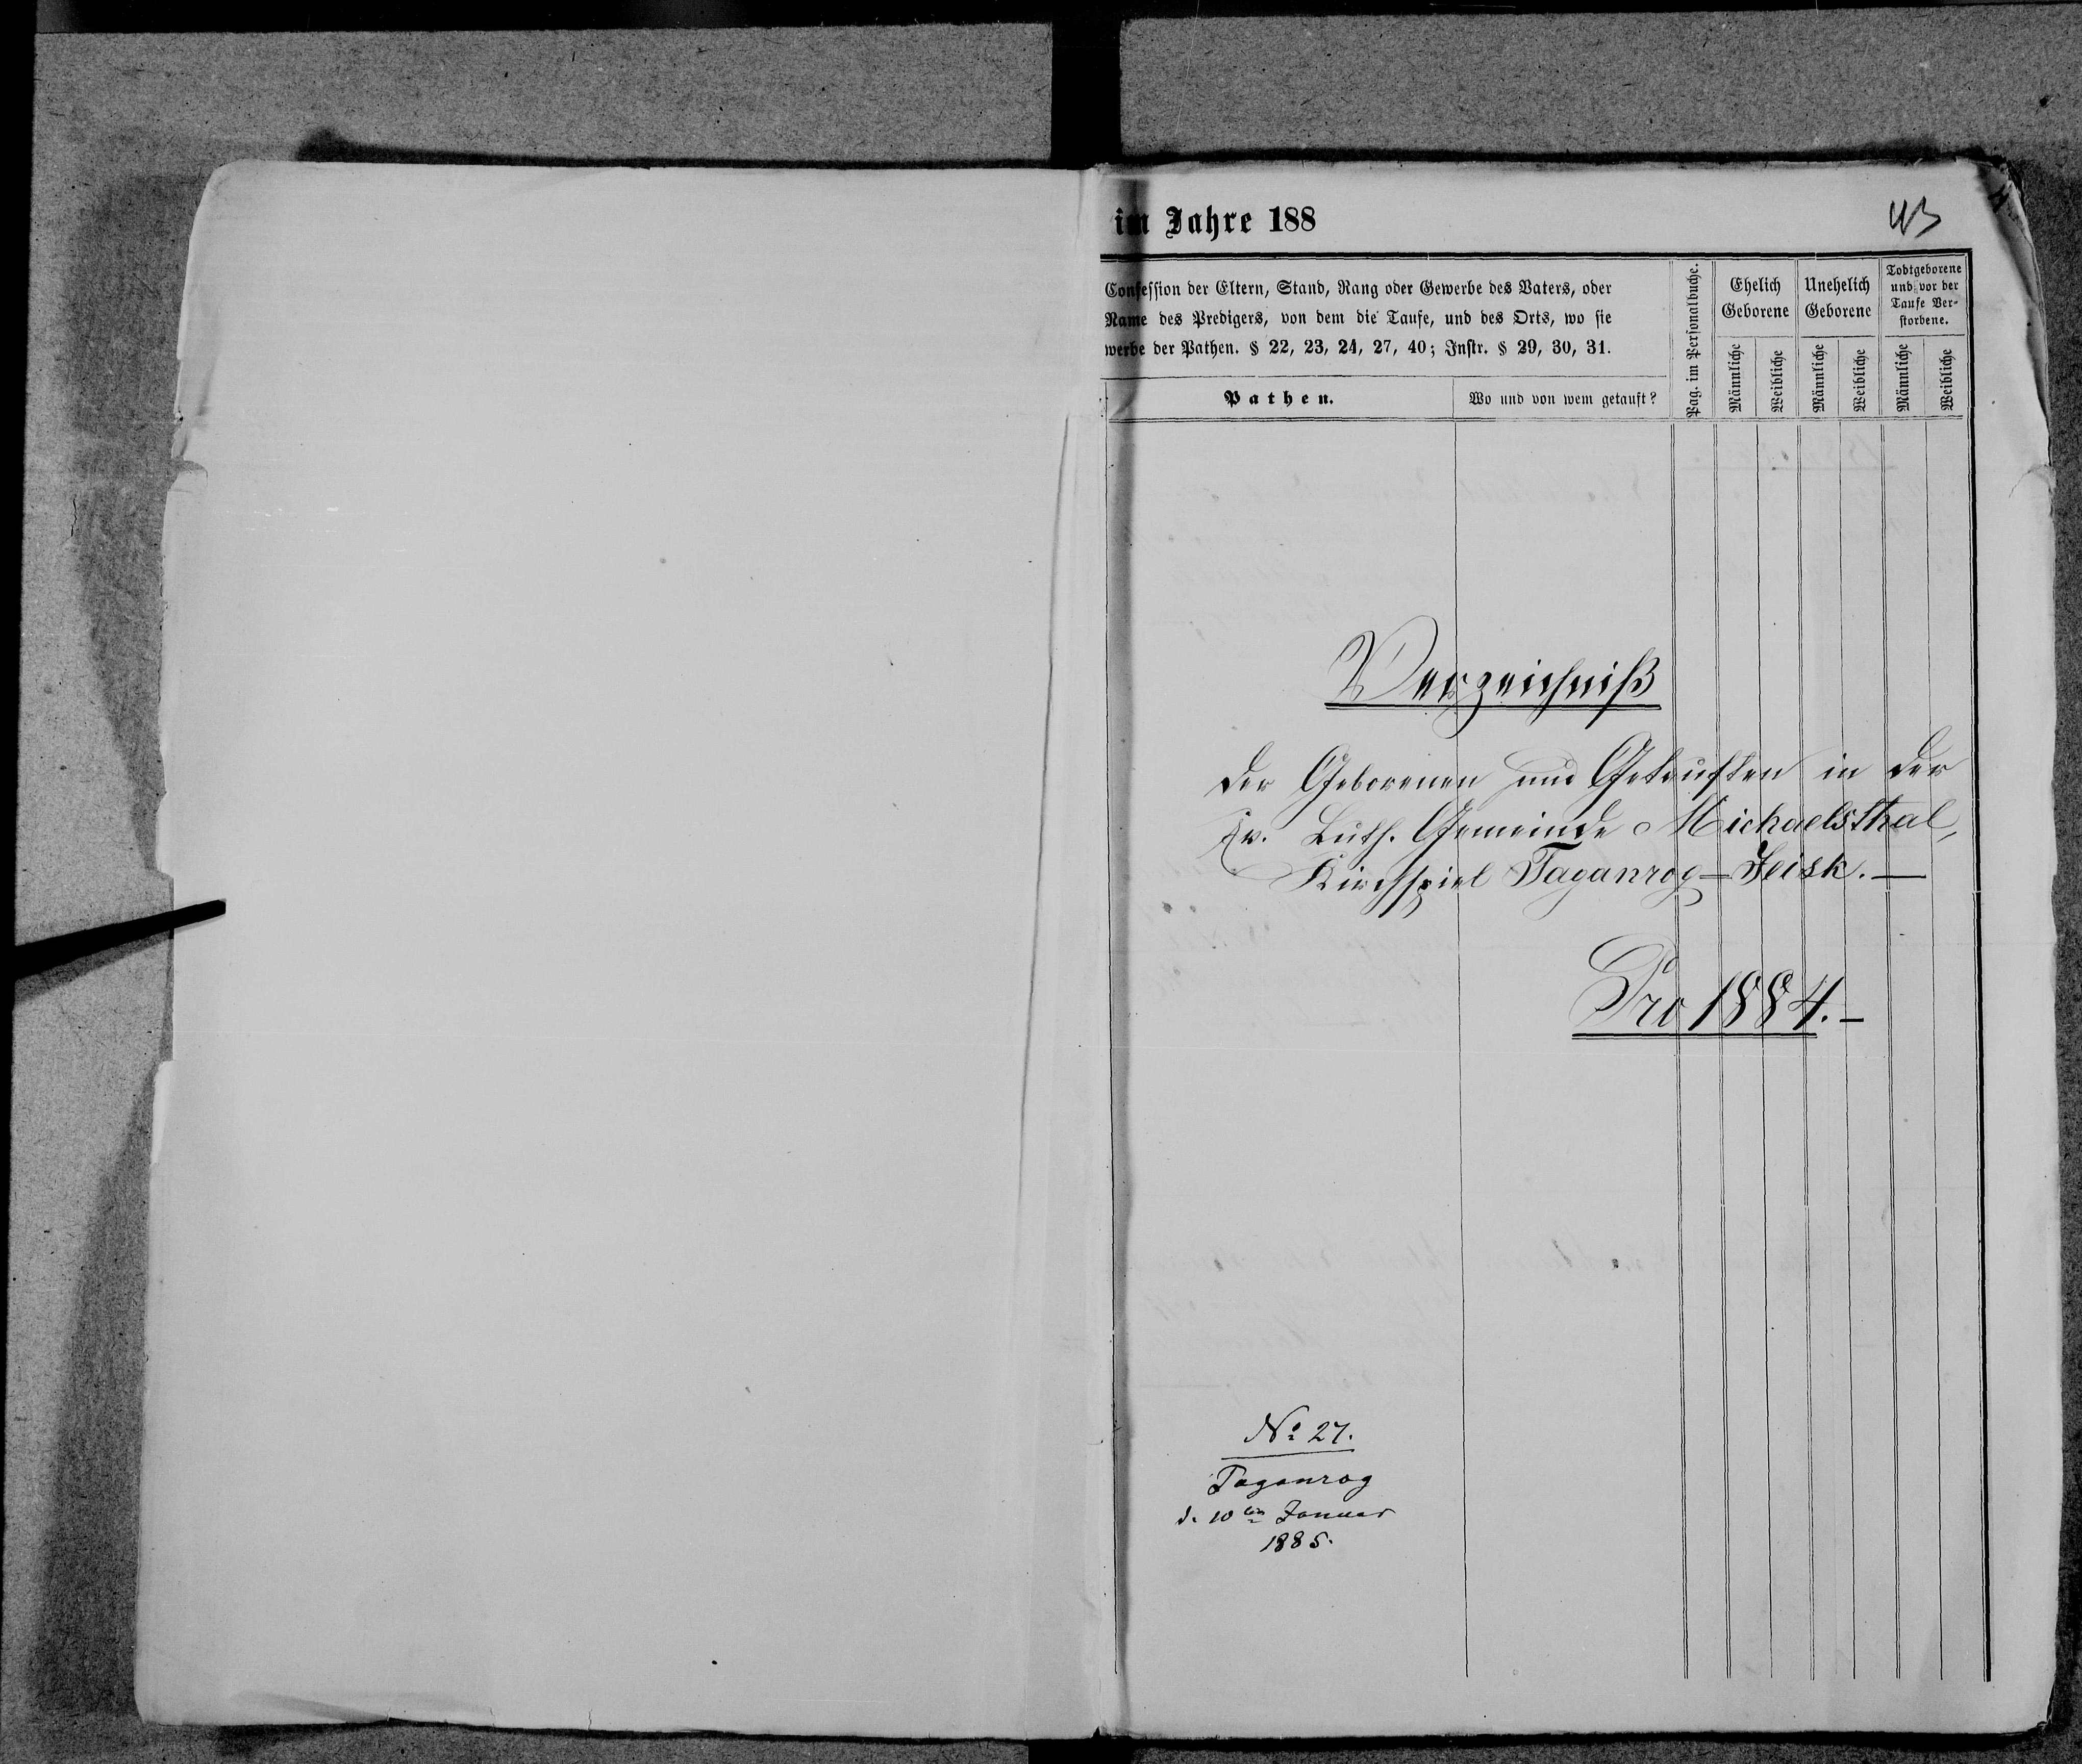 im Jahre 188
43
Confession der Eltern, Stand, Rang oder Gewerbe des Vaters, oder
Name des Predigers, von dem die Taufe, und des Orts, wo sie
werbe der Pathen. § 22, 23, 24, 27, 40; Instr. § 29, 30, 31.
Pathen.
Wo und von wem getauft?
Pag. im Personalbuche.
Ehelich
Geborene
Unehelich
Geborene
Todtgeborene
und vor der
Taufe Ver-
storbene.
Männliche
Weibliche
Männliche
Weibliche
Männliche
Weibliche
Verzeichniß
der Geborenen und Getauften in der
Ev. Luth. Gemeinde Michaelsthal,
Kirchspiel Taganrog-Jeisk.—
Pro 1884.—
№ 27.
Taganrog
d. 10ten Januar
1885.